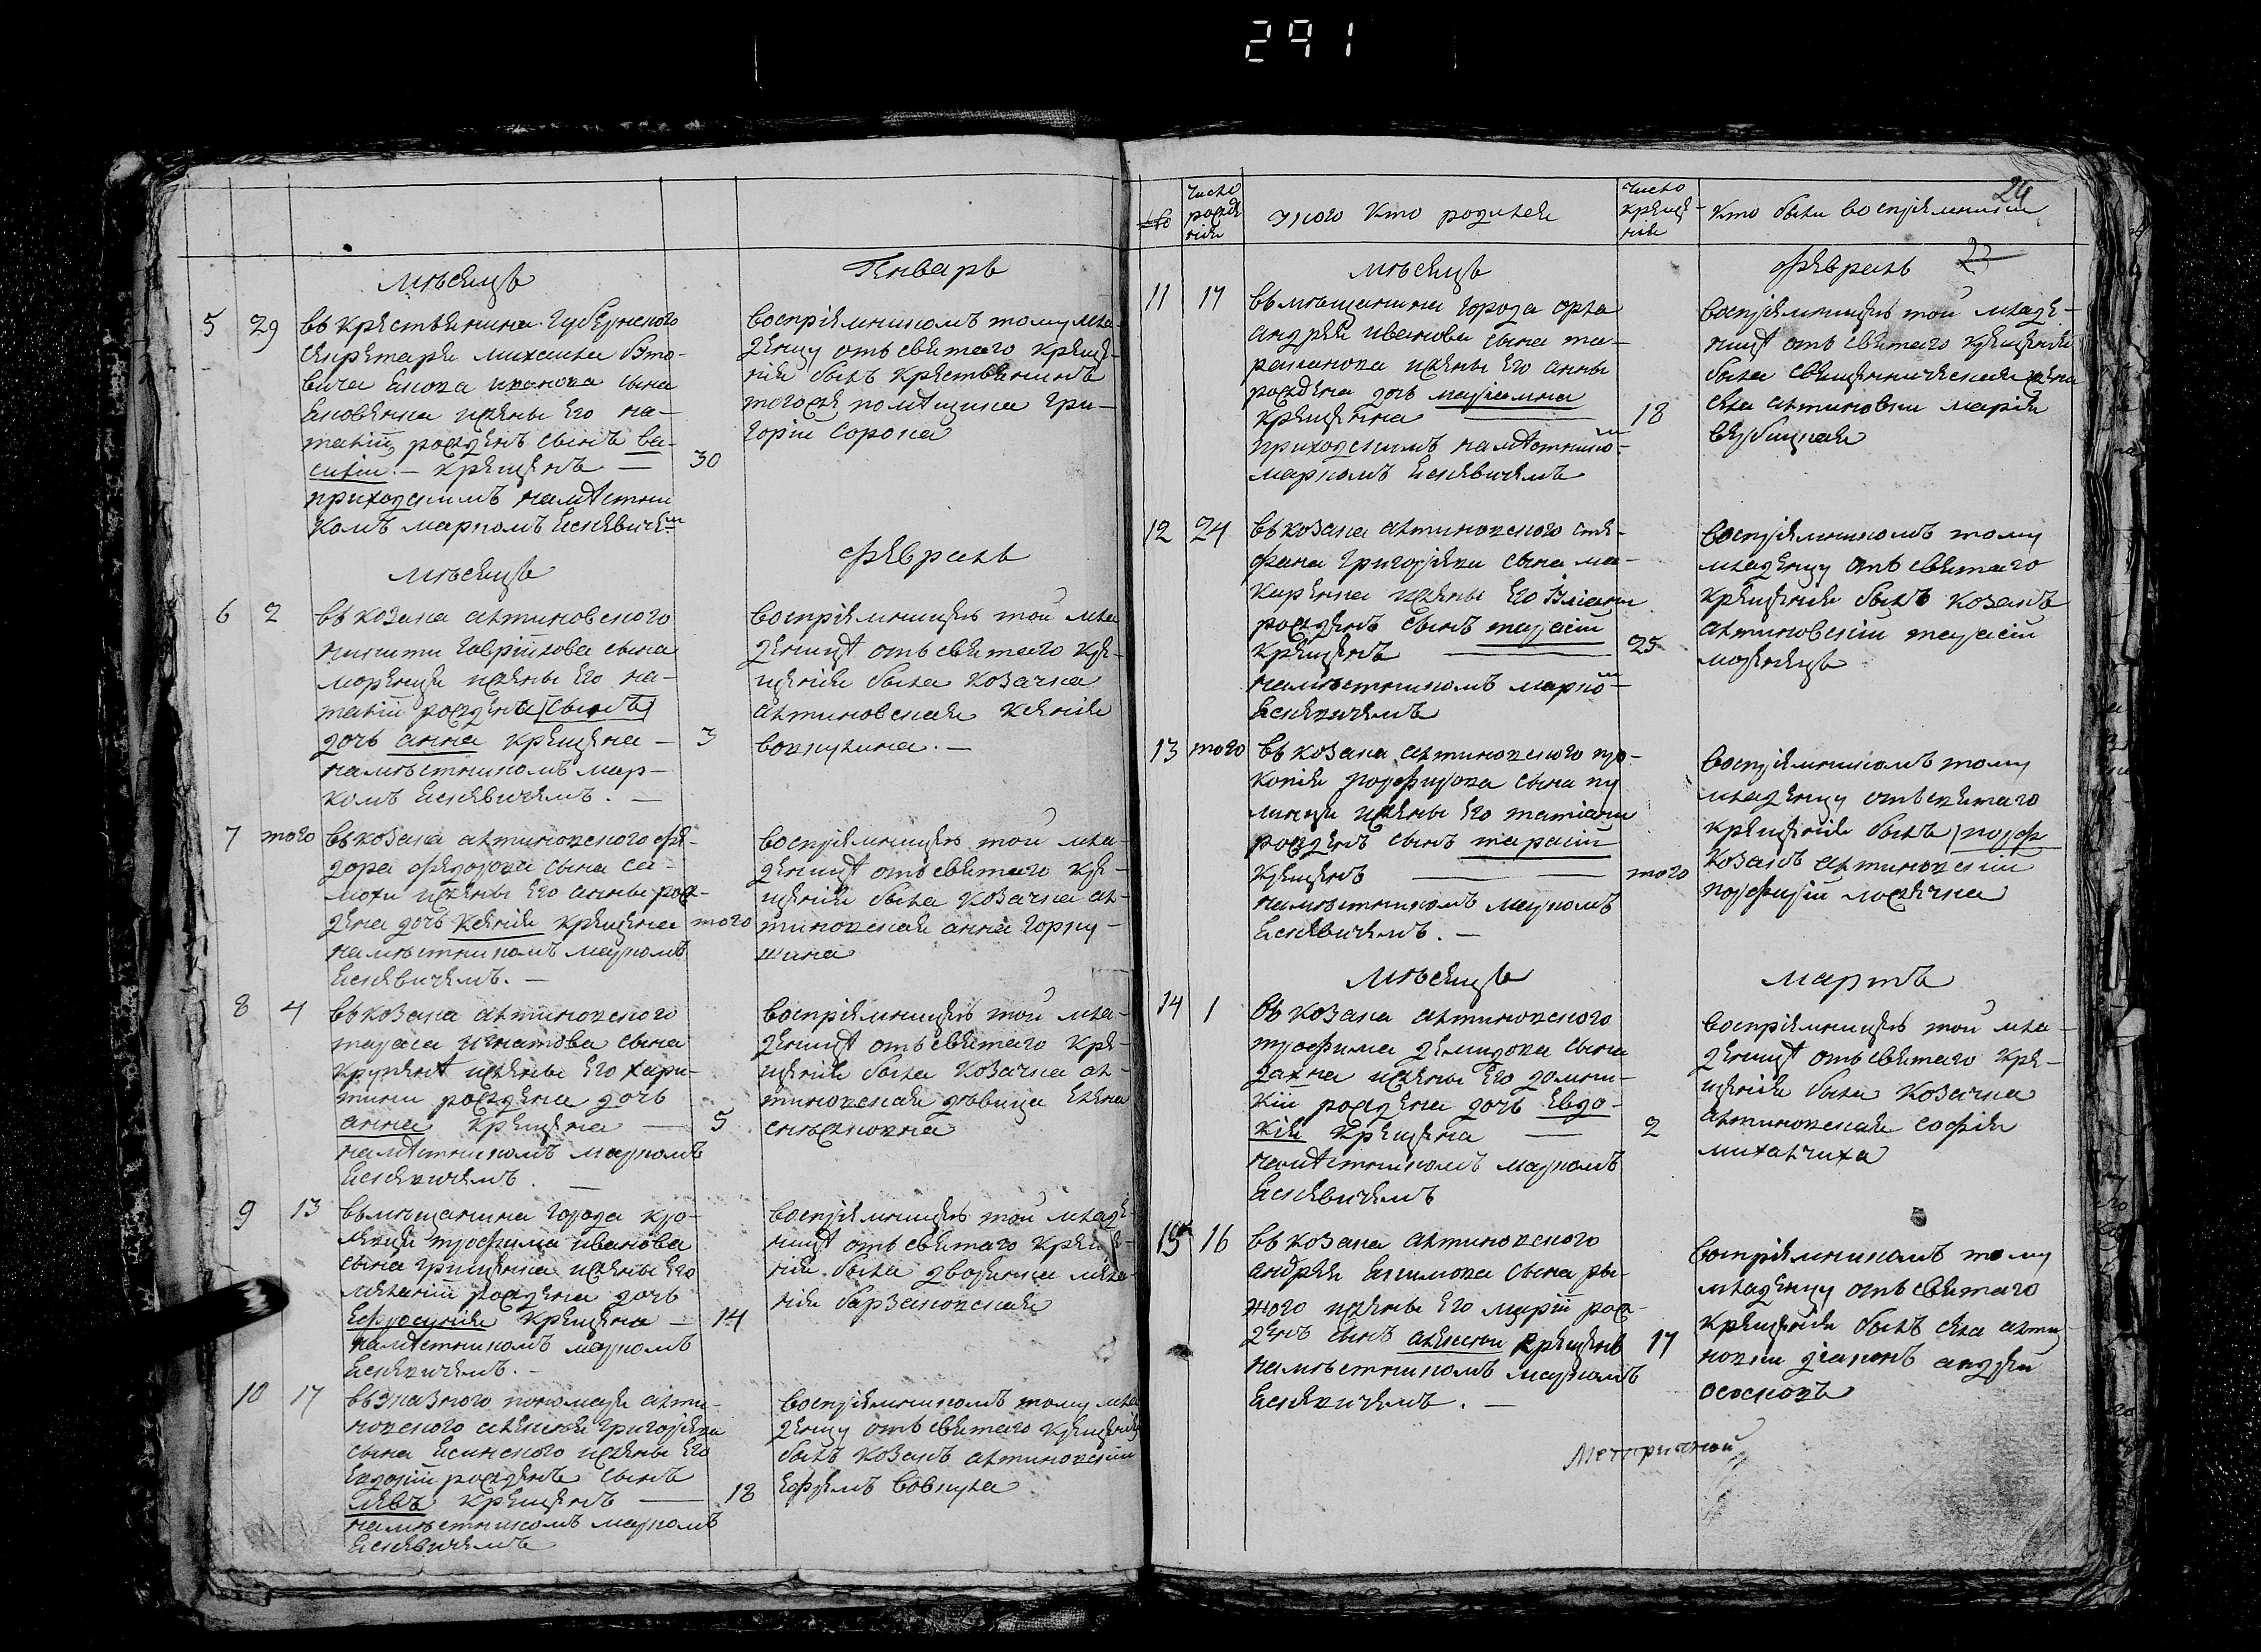 291
мѣсяцъ Генварь
5 29 въ крестьянина губернского
секретаря михаила Вто-
вича Якова сына
Яковенка жены его на-
талiи рожденъ сынъ ва-
силiи. – крещенъ – 30
приходскимъ намѣстни
комъ маркомъ Ясневичем
воспрiемникомъ тому мла-
денцу отъ святаго креще-
нiя былъ крестьянинъ
тогожъ помѣщика гри-
горiи сорока
мѣсяцъ февраль
6 2 въ козака алтиновского
никити гаврiилова сына
моренця жены его на-
талiи рожденъ сынъ
дочь анна крещена – 3
намѣстникомъ мар-
комъ Ясневичемъ. –
воспрiемницею той мла
деницѣ отъ святаго кре-
щенiя была козачка
алтиновская ксенiя
вовкулина. –
7 того въ козака алтиновского фе-
дора федорова сына са-
мохи жены его анны рож-
дена дочь ксенiя крещена того
намѣстникомъ маркомъ
Ясневичемъ. –
воспрiемницею той мла-
деницѣ отъ святаго кре-
щенiя была козачка ал-
тиновская анна горку-
шина
8 4 въ козака алтиновского
тараса игнатова сына
крупенѣ жены его хари-
тини рождена дочь
анна крещена – 5
намѣстникомъ маркомъ
Ясневичемъ. –
воспрiемницею той мла-
деницѣ отъ святаго кре-
щенiя была козачка ал-
тиновская дѣвица Елена
9 13 въ мѣщанина города кро-
левця трофима иванова
сына грищенка жены его
меланiи рождена дочь
Ефросинiя крещена – 14
намѣстникомъ маркомъ
Ясневичемъ. –
воспрiемницею той младе-
ницѣ отъ святаго креще-
нiя была дворянка мела-
нiя барзаковская
10 17 въ указного пономаря алти-
новского алексѣя григорiева
сына Ясинского жены его
Евдокiи рожденъ сынъ
левъ крещенъ – 18
намѣстникомъ маркомъ
Ясневичемъ
воспрiемникомъ тому мла
денцу отъ святаго крещенiя
былъ козакъ алтиновскiи
Ефремъ вовкула
24
число рожде нiя
у кого кто родился
число креще-нiя
кто были воспрiемники
мѣсяцъ февраль 23
11 17 въ мѣщанина города орла
андрея иванова сына та-
раканова жены его анны
рождена дочь марiамна
крещенна – 18
приходскимъ намѣстнико
маркомъ Ясневичемъ
воспрiемницею той младе-
ницѣ отъ святаго крещенiя
была священническая жена
села алтиновки марiя
вербицкая
12 24 въ козака алтиновского сте-
фана григорiева сына ма-
каренка жены его Улiани
рожденъ сынъ тарасiи
крещенъ – 25
намѣстникомъ марко
Ясневичемъ
воспрiемникомъ тому
младенцу отъ святаго
крещенiя былъ козакъ
алтиновскiи тарасiи
моренецъ
13 того въ козака алтиновского про-
копiя порфирова сына ку
линця жены его татiани
рожденъ сынъ тарасiи
крещенъ – того
намѣстникомъ маркомъ
Ясневичемъ. –
воспрiемникомъ тому
младенцу отъ святаго
крещенiя былъ порф
козакъ алтиновскiи
порфирiи
мѣсяцъ мартъ
14 1 въ козака алтиновского
трофима демидова сына
дахна жены его домни-
кiи рождена дочь Евдо-
кiя крещена – 2
намѣстникомъ маркомъ
Ясневичемъ
воспрiемницею той мла-
деницѣ отъ святаго кре-
щенiя была козачка
алтиновская софiя
михалчиха
15 16 въ козака алтиновского
андрея Якимова сына ры-
жого жены его марiи рож-
денъ сынъ алексѣи крещенъ 17
намѣстникомъ маркомъ
Ясневичемъ. –
воспрiемникомъ тому
младенцу отъ святаго
крещенiя былъ села алти-
новки дiаконъ андреи
Метричной